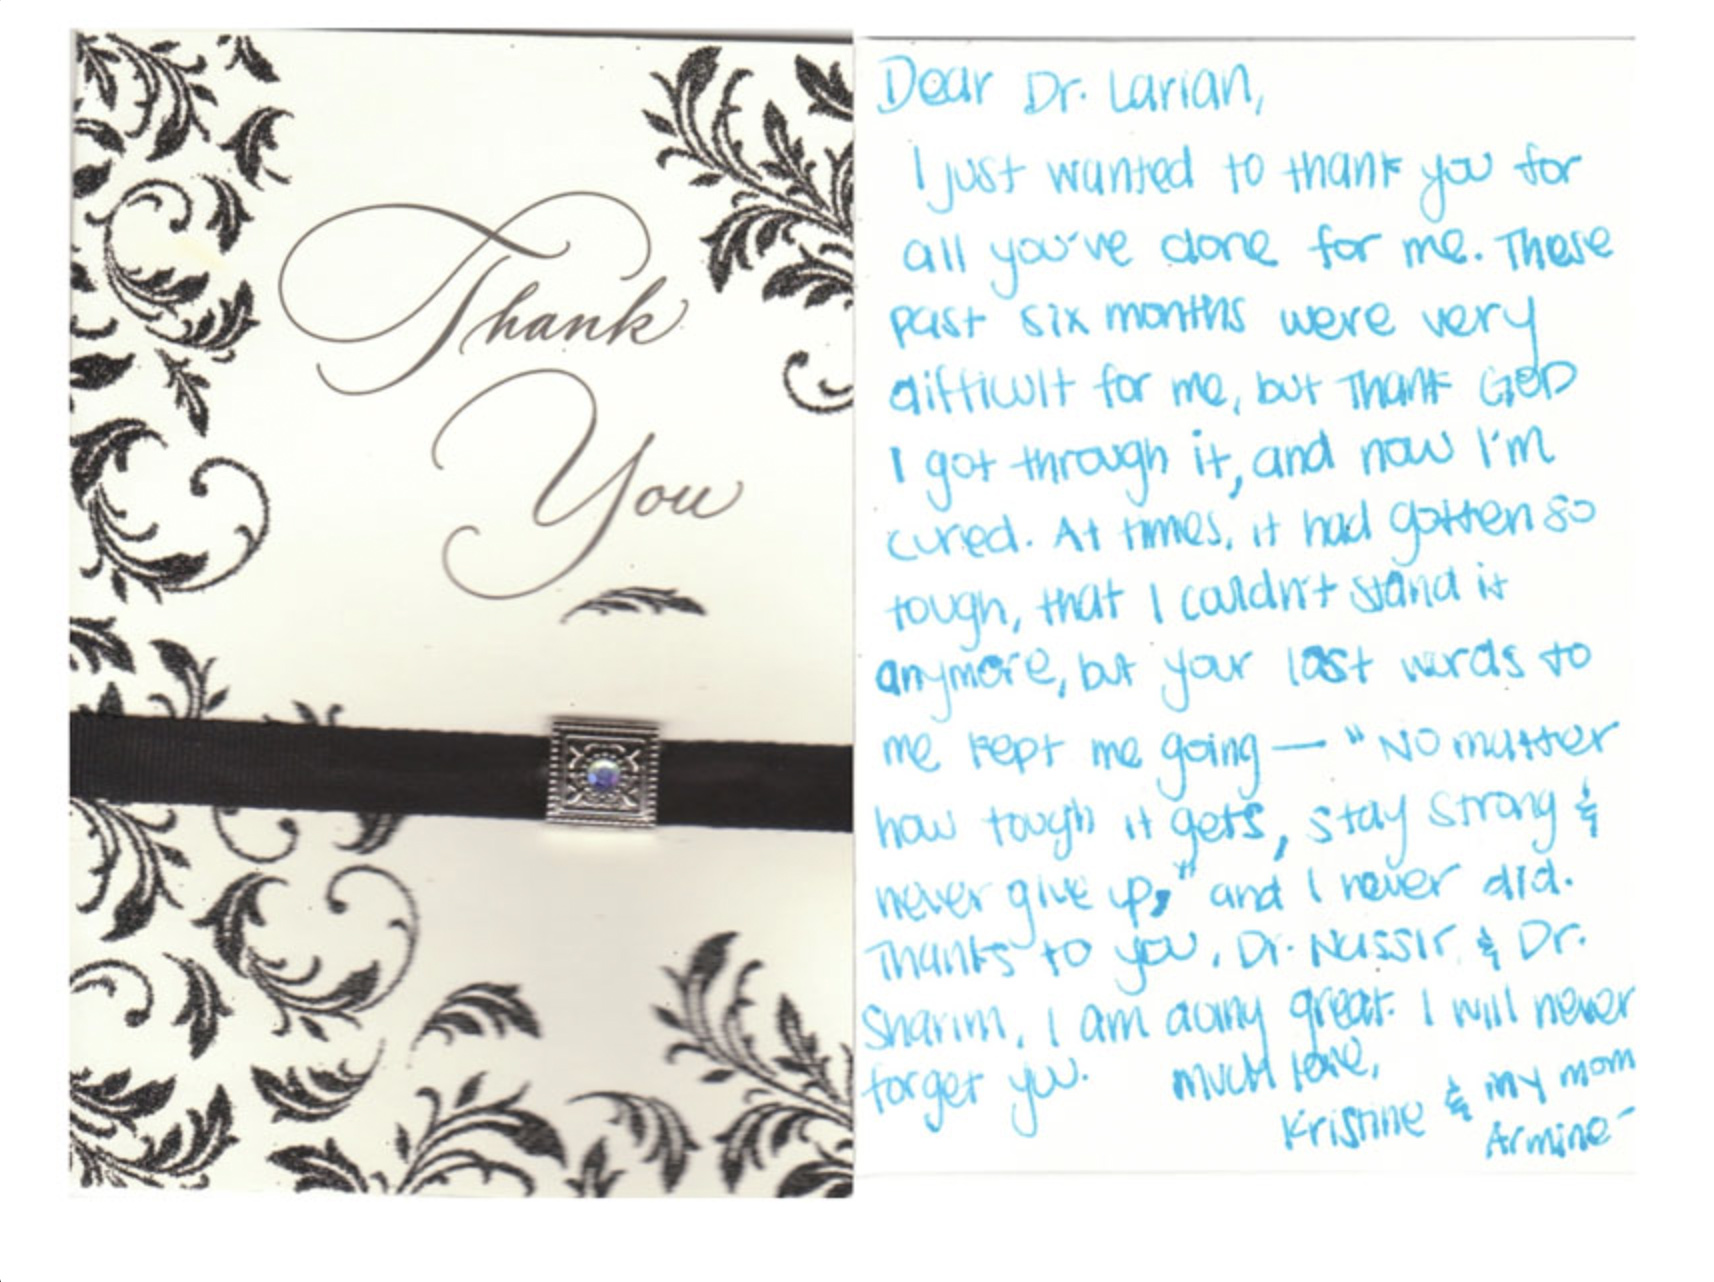 Thank
You
Dear Dr. Larian,
I just wanted to thank you for
all you've done for me. These
past six months were very
difficult for me, but Thank GOD
I got through it, and now I'm
cured. At times, it had gotten so
tough, that I couldn't stand it
anymore, but your last words to
me kept me going — "No matter
how tough it gets, stay strong &
never give up," and I never did.
Thanks to you, Dr. Nassir, & Dr.
Sharim, I am doing great. I will never
forget you. Much love,
Kristine & my mom
Armine-